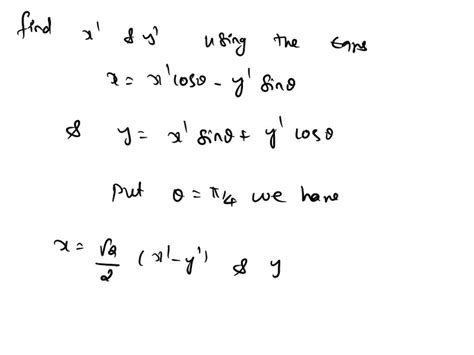 find x' & y' using the eqns
x = x' cosθ - y' sinθ
& y = x' sinθ + y' cosθ
put θ = π/4 we have
x = √2/2 (x' - y') & y